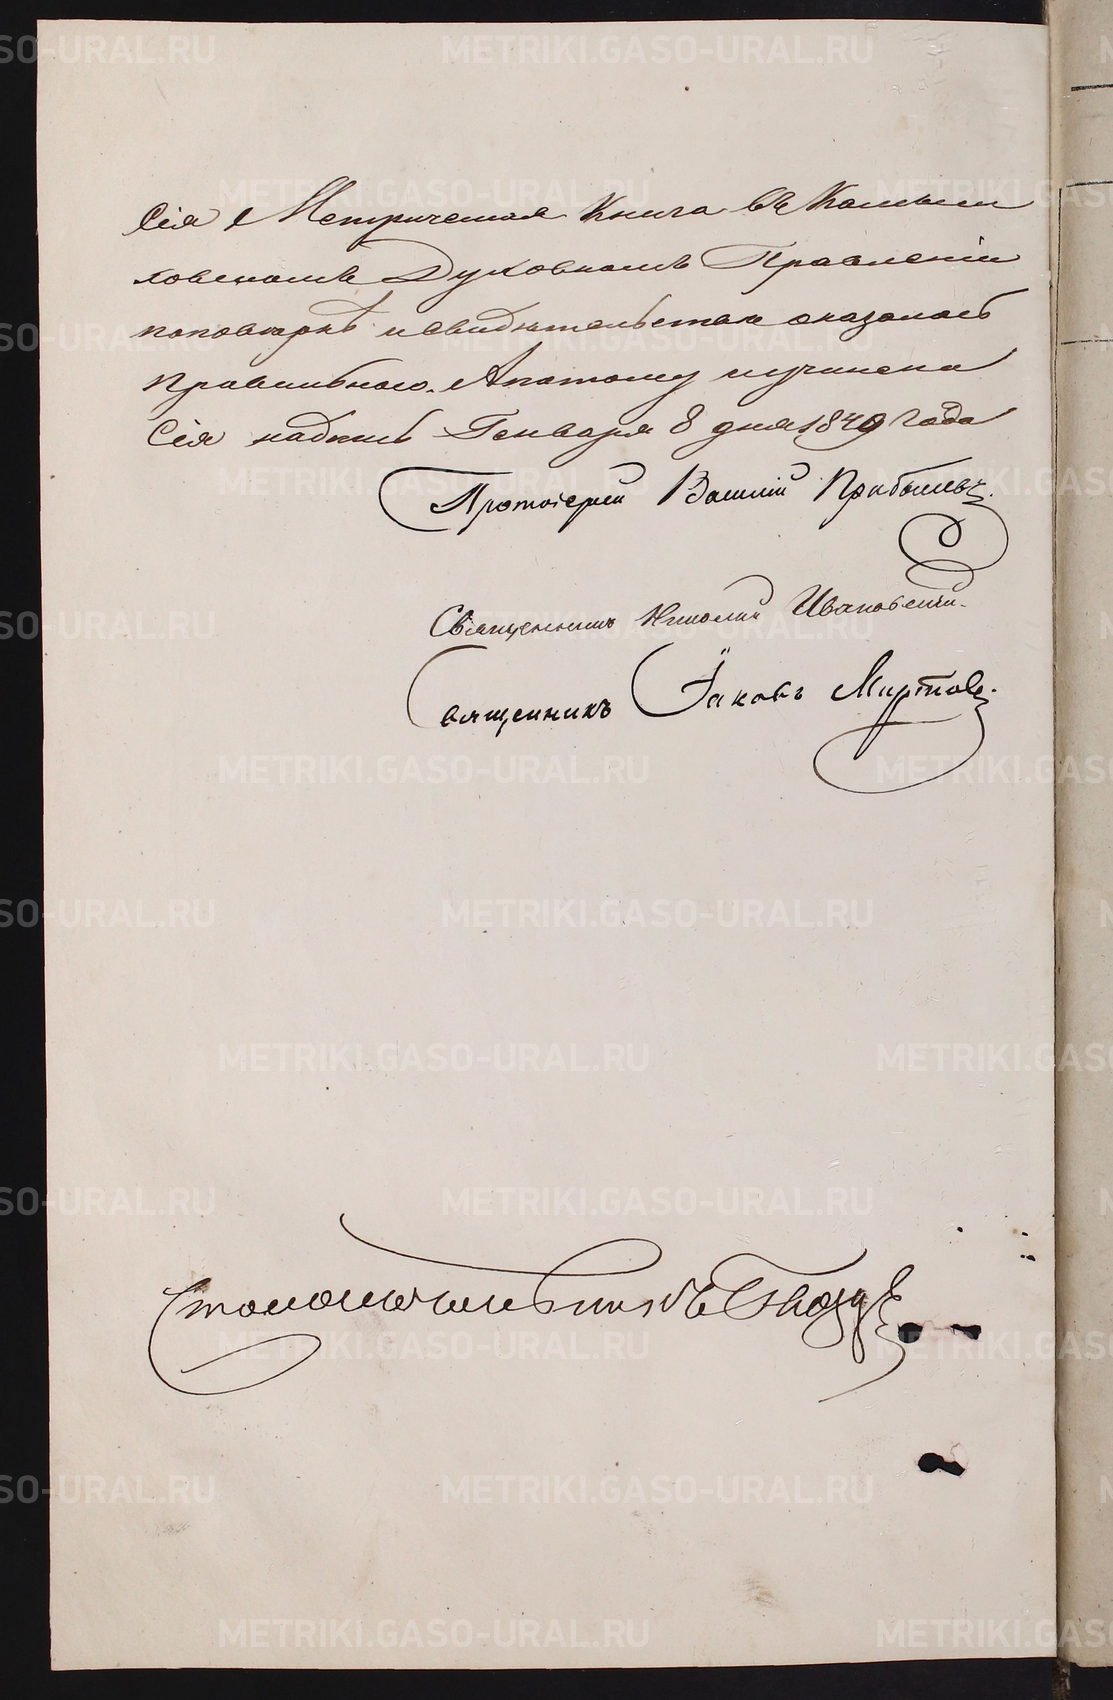 Сія Метрическая Книга въ Камыш
ловскомъ Духовномъ Правленіи
поповѣркѣ исвидѣтельствѣ оказалась
правильною. Апотому иучинена
Сія надпись Генваря 8 дня 1849 года
Протоіерей Василій Прибылевъ.
Священникъ Николай Ивановскій.
Священникъ Іаковъ Мартовъ.
Столоначальникъ
METRIKI.GASO-URAL.RU